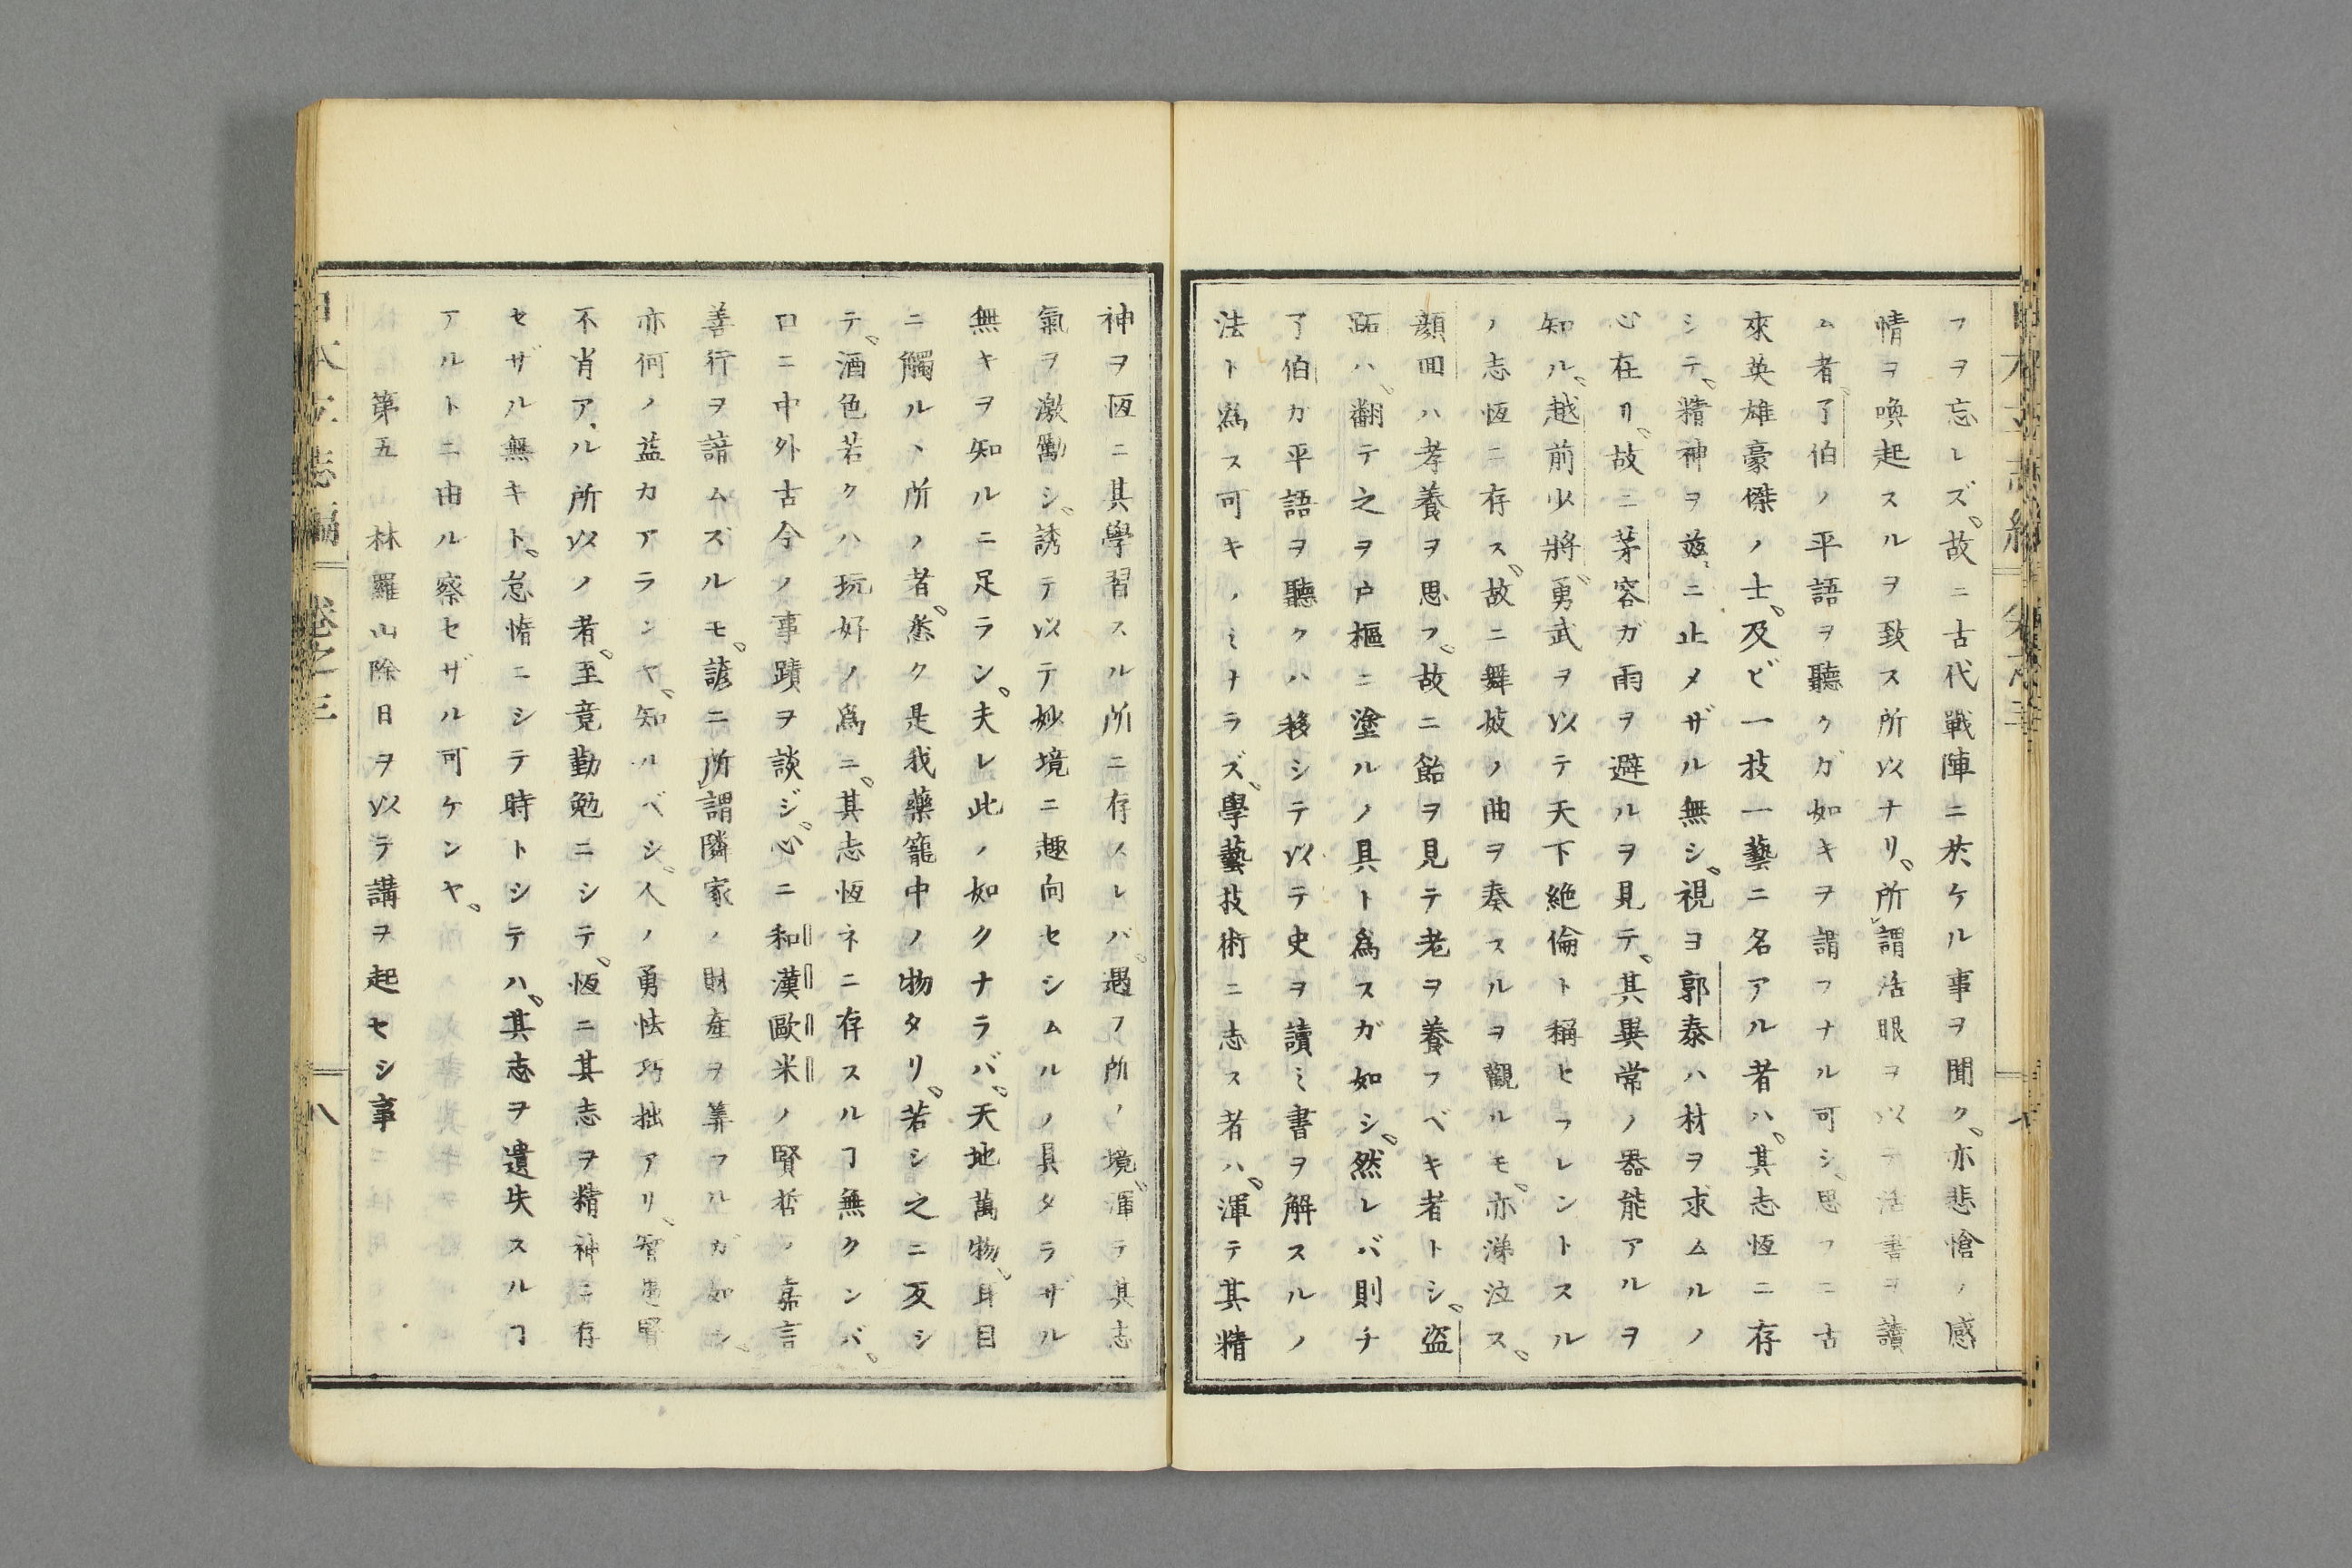 フヲ忘レズ。故ニ古代戰陣ニ於ケル事ヲ聞ク。亦悲愴ノ感
情ヲ喚起スルヲ致ス所以ナリ。所謂活眼ヲ以テ活書ヲ讀
ム者。了伯ノ平語ヲ聽クガ如キヲ謂フナル可シ。思フニ古
來英雄豪傑ノ士。及ビ一技一藝ニ名アル者ハ。其志恆ニ存
シテ。精神ヲ茲ニ止メザル無シ。視ヨ郭泰ハ材ヲ求ムルノ
心在リ。故ニ茅容ガ雨ヲ避ルヲ見テ。其異常ノ器能アルヲ
知ル。越前少將勇武ヲ以テ天下絶倫ト稱ヒフレントスル
ノ志恆ニ存ス。故ニ舞妓ノ曲ヲ奏スルヲ觀ルモ。亦涕泣ス。
顏囬ハ孝養ヲ思フ。故ニ飴ヲ見テ老ヲ養フベキ者トシ。盜
跖ハ。翻テ之ヲ戸樞ニ塗ルノ具ト爲スガ如シ。然レバ則チ
了伯ガ平語ヲ聽クハ移シテ以テ史ヲ讀ミ書ヲ解スルノ
法ト爲ス可キノミナラズ。學藝技術ニ志ス者ハ。渾テ其精
神ヲ恆ニ其學習スル所ニ存スレバ。遇フ所ノ境。渾テ其志
氣ヲ激勵シ。誘テ以テ妙境ニ趣向セシムルノ具タラザル
無キヲ知ルニ足ラン。夫レ此ノ如クナラバ。天地萬物。耳目
ニ觸ルヽ所ノ者。悉ク是我藥籠中ノ物タリ。若シ之ニ反シ
テ。酒色若クハ玩好ノ爲ニ。其志恆ネニ存スルヿ無クンバ。
口ニ中外古今ノ事蹟ヲ談ジ。心ニ和漢歐米ノ賢哲ノ嘉言
善行ヲ諳ムズルモ。諺ニ所謂隣家ノ財產ヲ筭フルガ如シ。
亦何ノ益カアランヤ。知ルベシ。人ノ勇怯巧拙アリ。智愚賢
不肖アル所以ノ者。至竟勤勉ニシテ。恆ニ其志ヲ精神ニ存
セザル無キト。怠惰ニシテ時トシテハ。其志ヲ遺失スルヿ
アルトニ由ル察セザル可ケンヤ。
第五 林羅山除日ヲ以テ講ヲ起セシ事